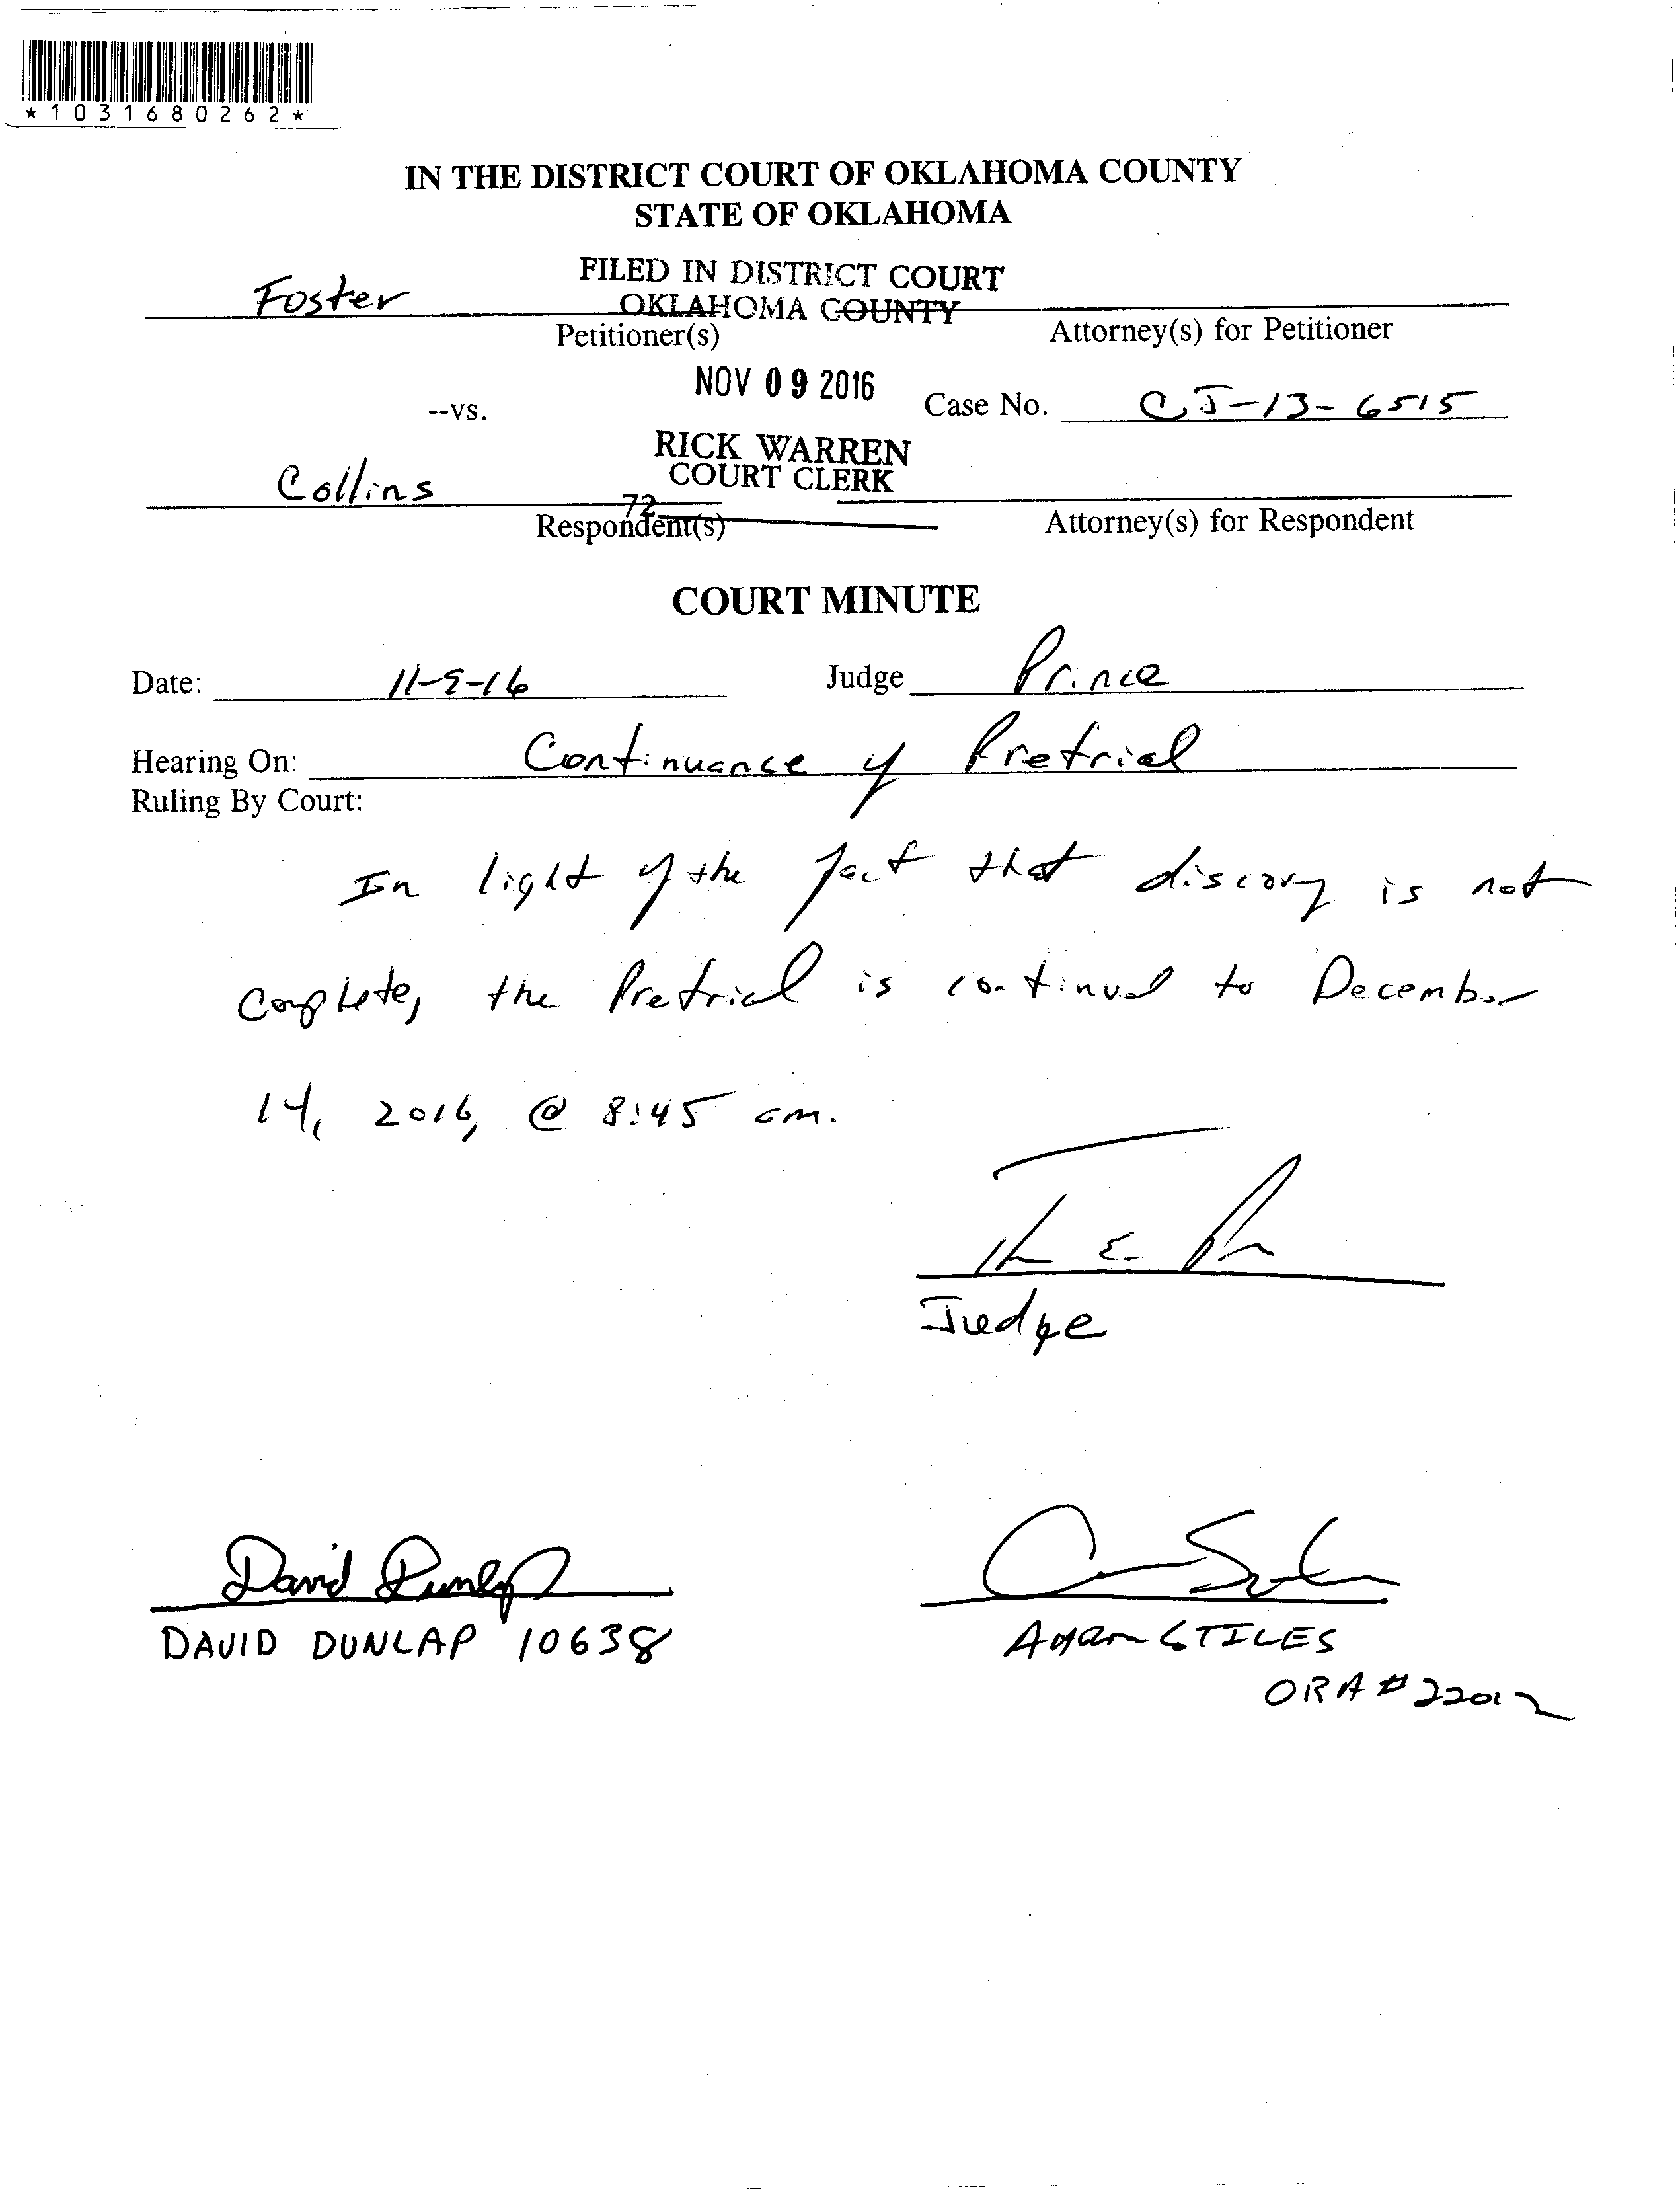 *1031680262*
IN THE DISTRICT COURT OF OKLAHOMA COUNTY
STATE OF OKLAHOMA
FILED IN DISTRICT COURT
OKLAHOMA COUNTY
Foster
Petitioner(s) Attorney(s) for Petitioner
NOV 09 2016
--vs. Case No. CJ-13-6515
RICK WARREN
COURT CLERK
Collins
72
Respondent(s) Attorney(s) for Respondent
COURT MINUTE
Date: 11-9-16 Judge Prince
Hearing On: Continuance of Pretrial
Ruling By Court:
In light of the fact that discovry is not
complete, the Pretrial is continued to December
14, 2016, @ 8:45 am.
Judge
David Dunlap
DAVID DUNLAP 10638
STILES
#22012